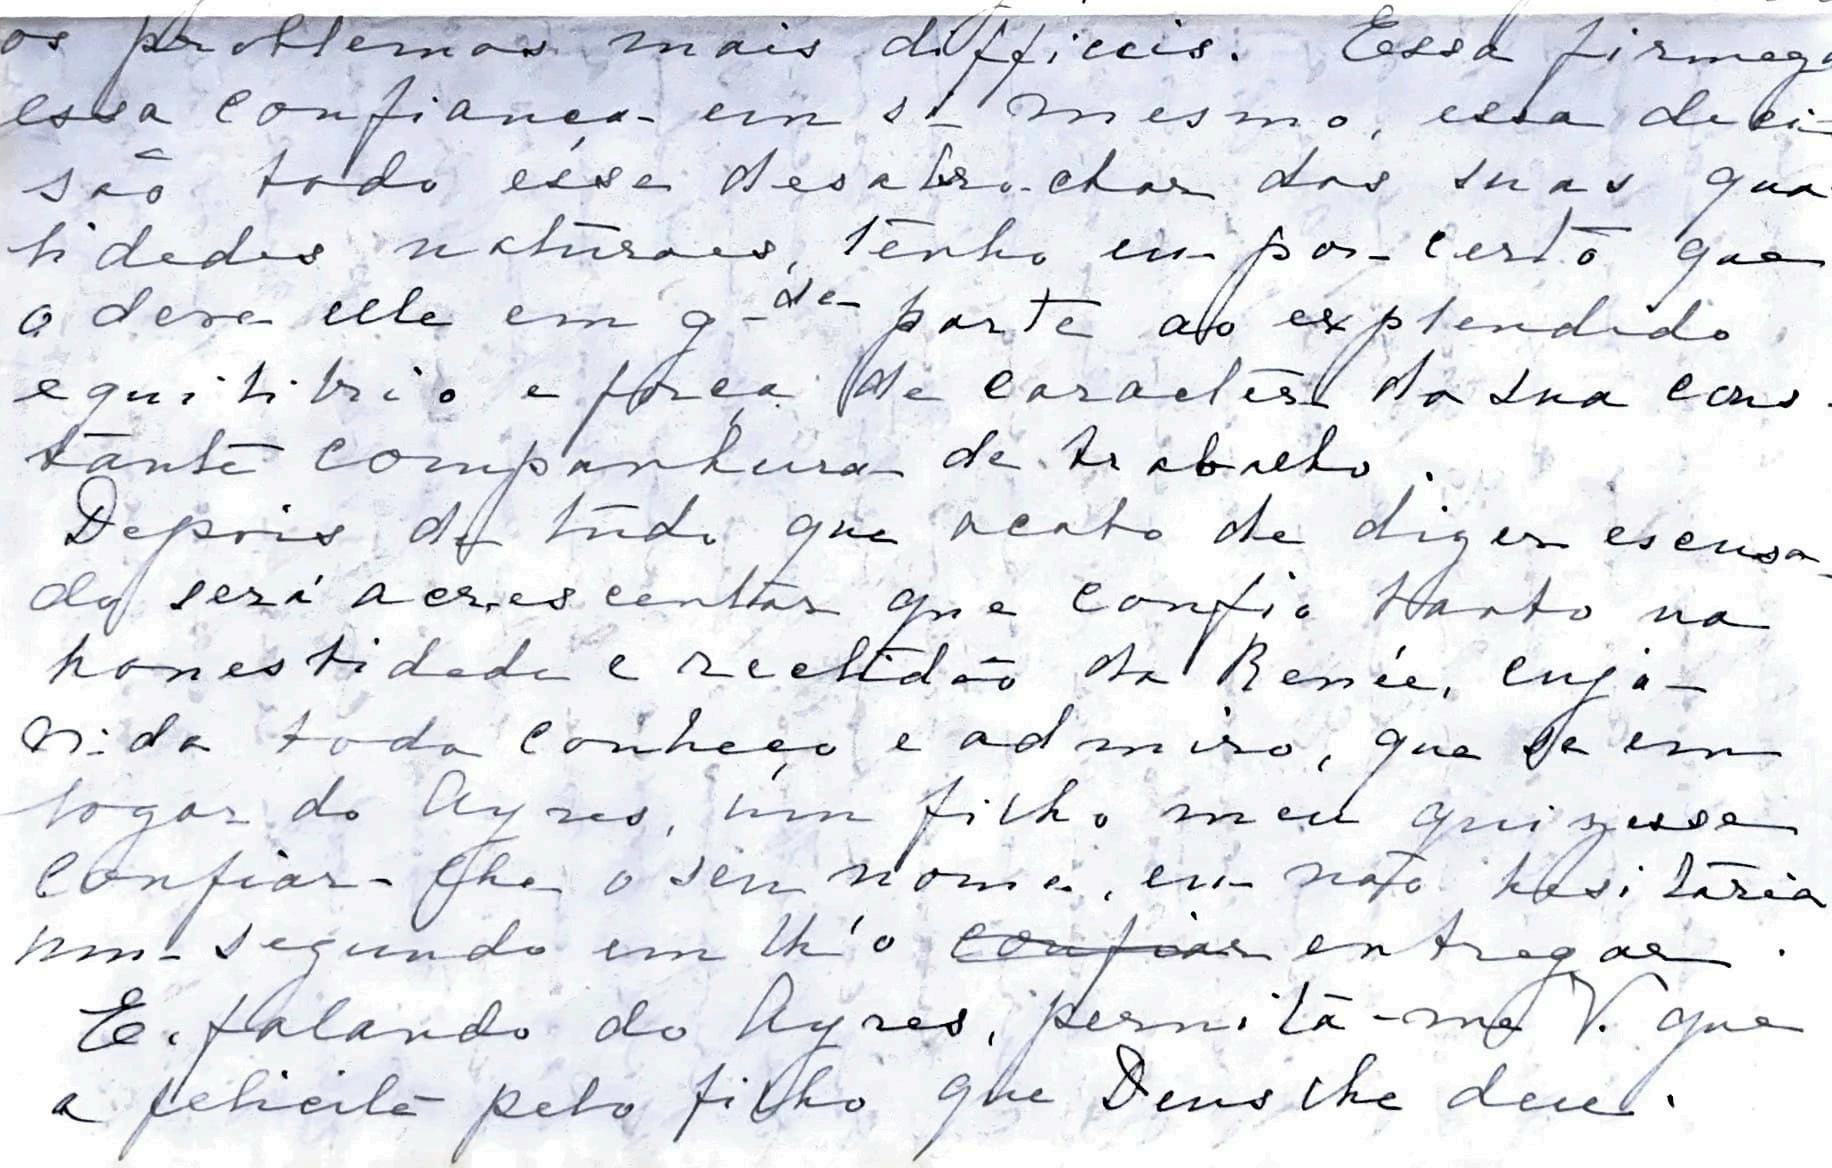 os problemas mais difficeis. Essa firmeza
essa confiança em si mesmo, essa deci-
são todo ésse desabrochar das suas qua-
lidades naturaes, tenho eu por certo que
o deve elle em g-de parte ao explendido
equilibrio e força de caracter da sua cons-
tante companheira de trabalho.
Depois de tudo que acabo de dizer escusa-
do será acrescentar que confio tanto na
honestidade e rectidão da Renée, cuja
vida toda conheço e admiro, que se em
logar do Ayres, um filho meu quizesse
confiar-lhe o seu nome, eu não hesitaria
um segundo em lh'o confiar entregar.
E, falando do Ayres, permita-me V. que
a felicite pelo filho que Deus lhe deu.